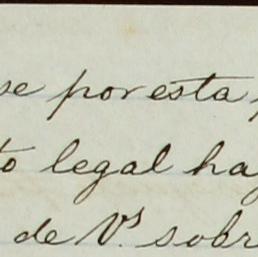 se por esta
to legal hay
de Vs. sobr